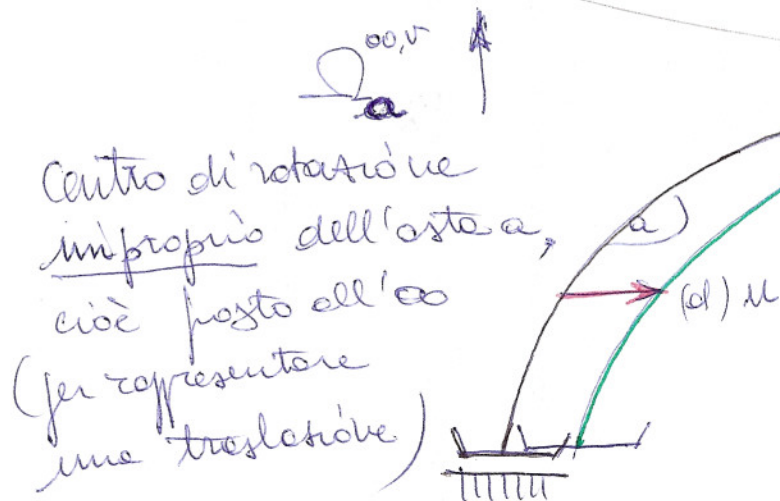 Ω a ∞,v
Centro di rotazione
improprio dell'asta a,
cioè posto all'∞
(per rappresentare
una traslazione)
a)
(d) u